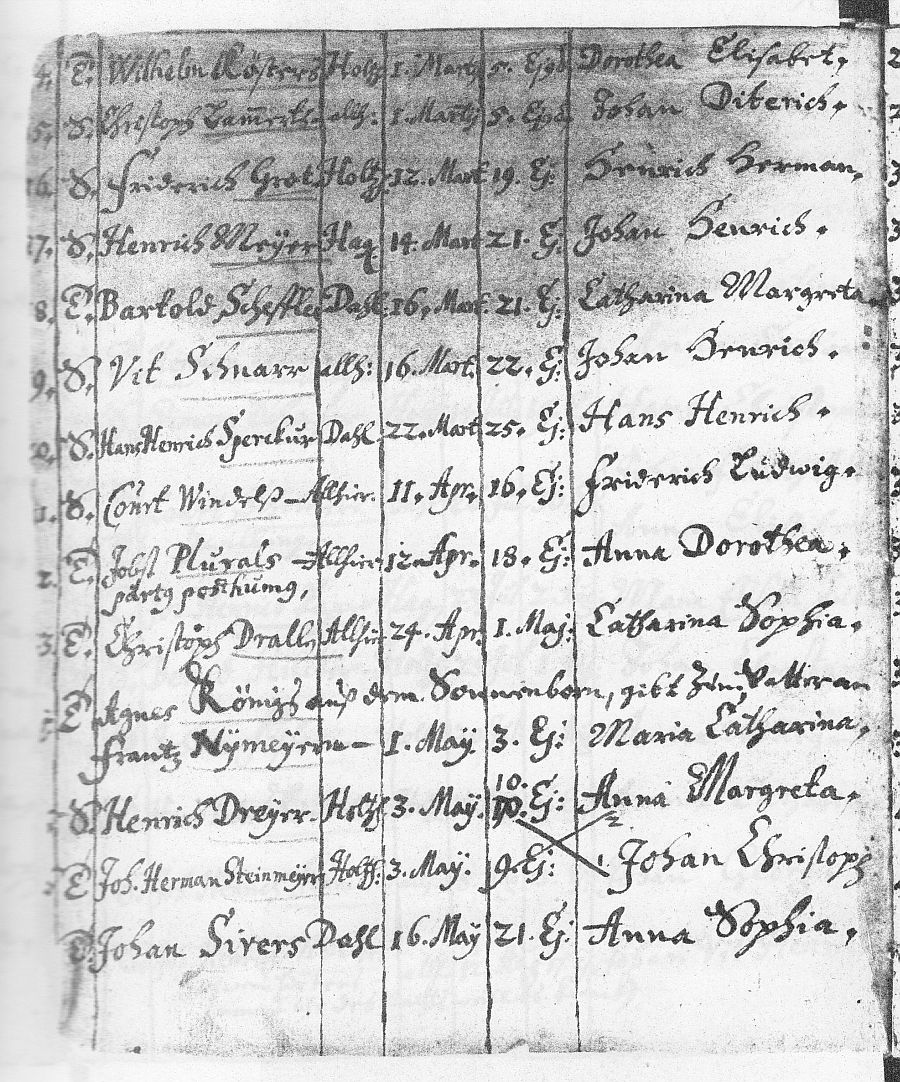 4. T. Wilhelm Kösters Holtz 1. Martz 5. Ejsd Dorothea Elisabet,
5. S. Christoph Lammerts allh: 1. Marty 5. Ejsd Johan Diterich,
16. S. Friderich Grot Holtz 12. Mart 19. Ej: Henrich Herman,
17. S. Henrich Meÿer Hag. 14. Mart 21. Ej: Johan Henrich,
8. T. Bartold Scheffler Dahl: 16. Mart. 21. Ej: Catharina Margreta
9. S. Vit Schnarr allh: 16. Mart. 22. Ej: Johan Henrich,
S. Hans Henrich Sperckur Dahl 22. Mart 25. Ej: Hans Henrich,
1. S. Court Windelß - Allhier. 11. Apr. 16. Ej: Friderich Ludwig,
2. T. Jobst Plurals - Allhier 12. Apr. 18. Ej: Anna Dorothea,
party posthumg,
3. T. Christoph Dralle Allhier 24. Apr. 1. Maj: Catharina Sophia,
T. Agnes Königs auß dem Sonnenborn, gibt Vatter an
Frantz Nÿmeÿer - 1. May 3. Ej: Maria Catharina,
10.
S. Henrich Dreÿer. Holtzh 3. May. Ej: Anna Margreta,
2
T Joh. Herman Steinmeÿer Holtzh: 3. May. 9. Ej: 1. Johan Christoph
T. Johan Sivers Dahl 16. May 21. Ej: Anna Sophia,